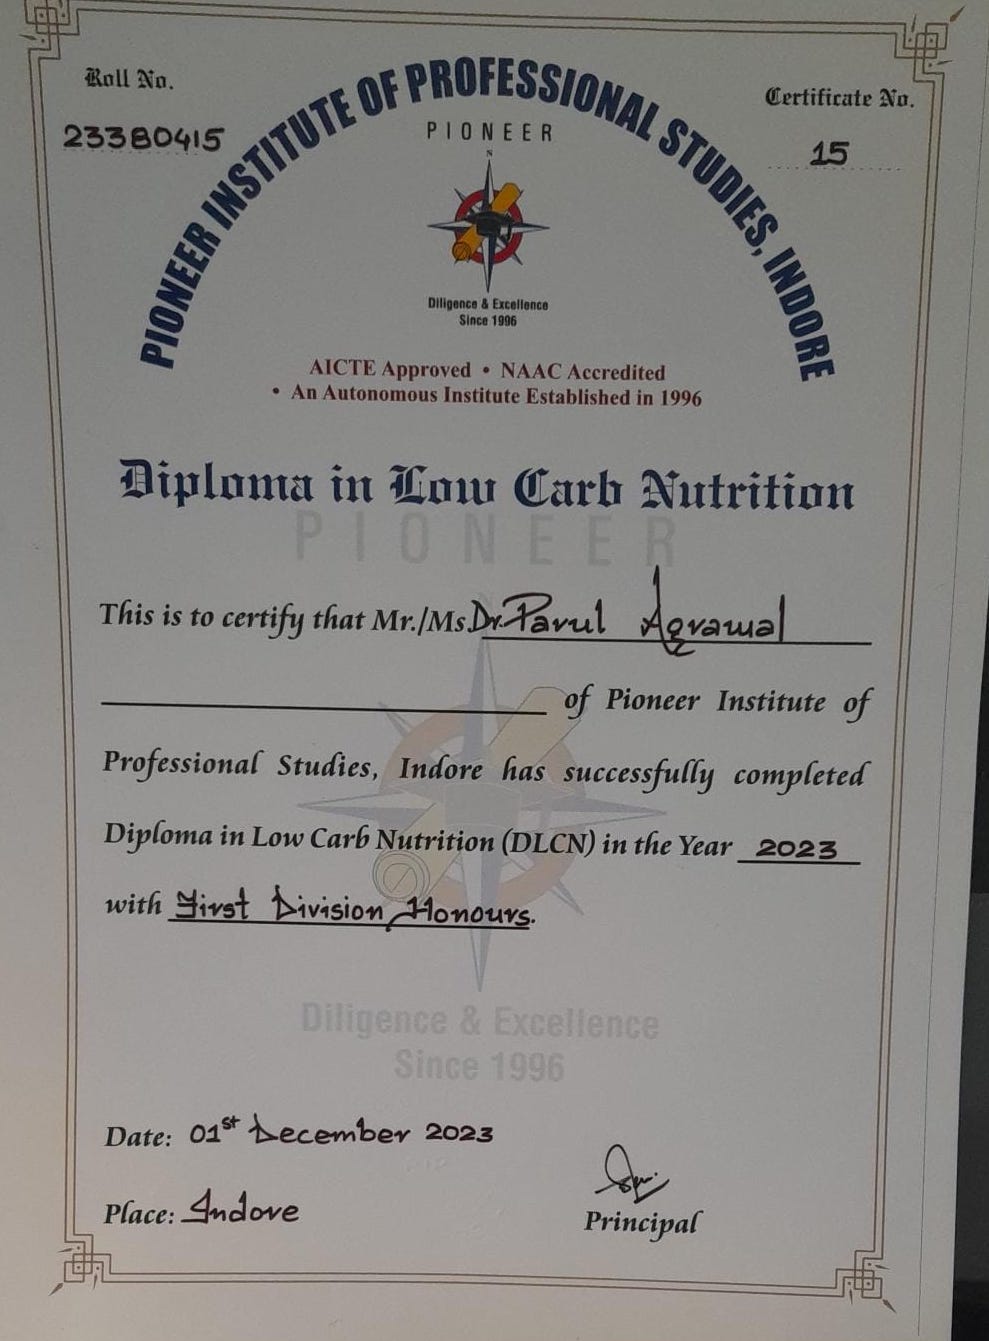 Roll No.
23380415
Certificate No.
15
PIONEER INSTITUTE OF PROFESSIONAL STUDIES, INDORE
PIONEER
N
Diligence & Excellence
Since 1996
AICTE Approved • NAAC Accredited
• An Autonomous Institute Established in 1996
Diploma in Low Carb Nutrition
PIONEER
This is to certify that Mr./Ms. Dr. Parul Agrawal
of Pioneer Institute of
Professional Studies, Indore has successfully completed
Diploma in Low Carb Nutrition (DLCN) in the Year 2023
with First Division, Honours.
Diligence & Excellence
Since 1996
Date: 01st December 2023
Place: Indore
Principal